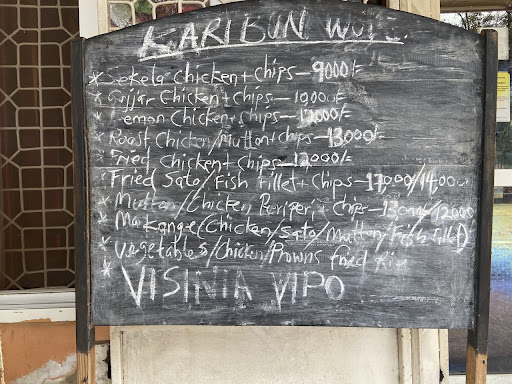 KARIBUN WOTE
* Sekela Chicken + Chips — 9000/-
* Gujjar Chicken + Chips — 10,000/-
* Lemon Chicken + chips — 12000/-
* Roast Chicken/Mutton + chips — 13000/-
* Fried Chicken + Chips — 12,000/-
* Fried Sato/Fish Fillet + Chips — 17,000/14,000
* Mutton/Chicken Periperi + Chips — 13,000/12000
* Makange (Chicken/Sato/Mutton/Fish Fillet)
* Vegetables/Chicken/Prowns fried
* VISINIA VIPO